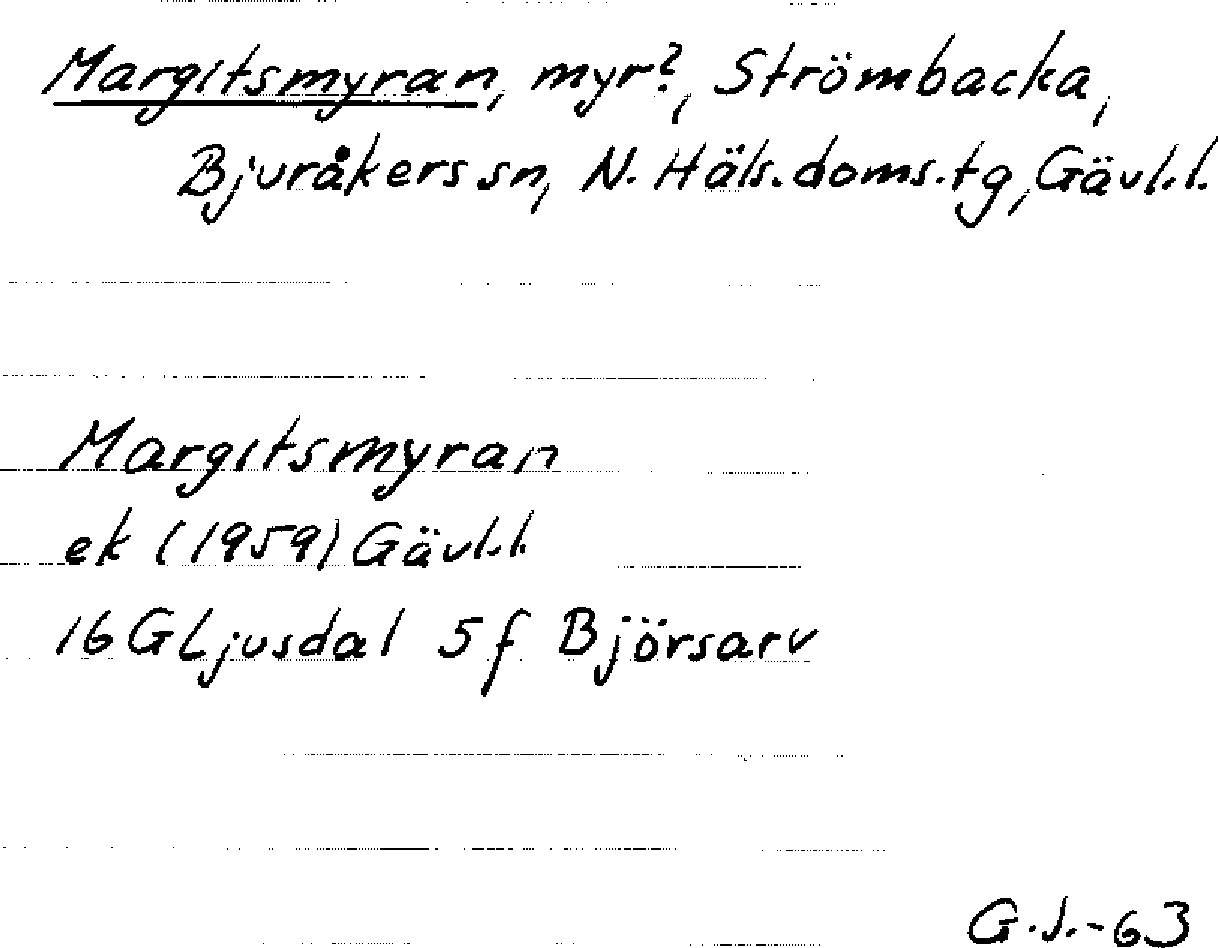 Margitsmyran, myr?, Strömbacka,
Bjuråkers sn, N. Häls. doms. tg, Gävl.l.
Margitsmyran
ek (1959) Gävl.l.
16G Ljusdal 5f Björsarv
G.J.-63